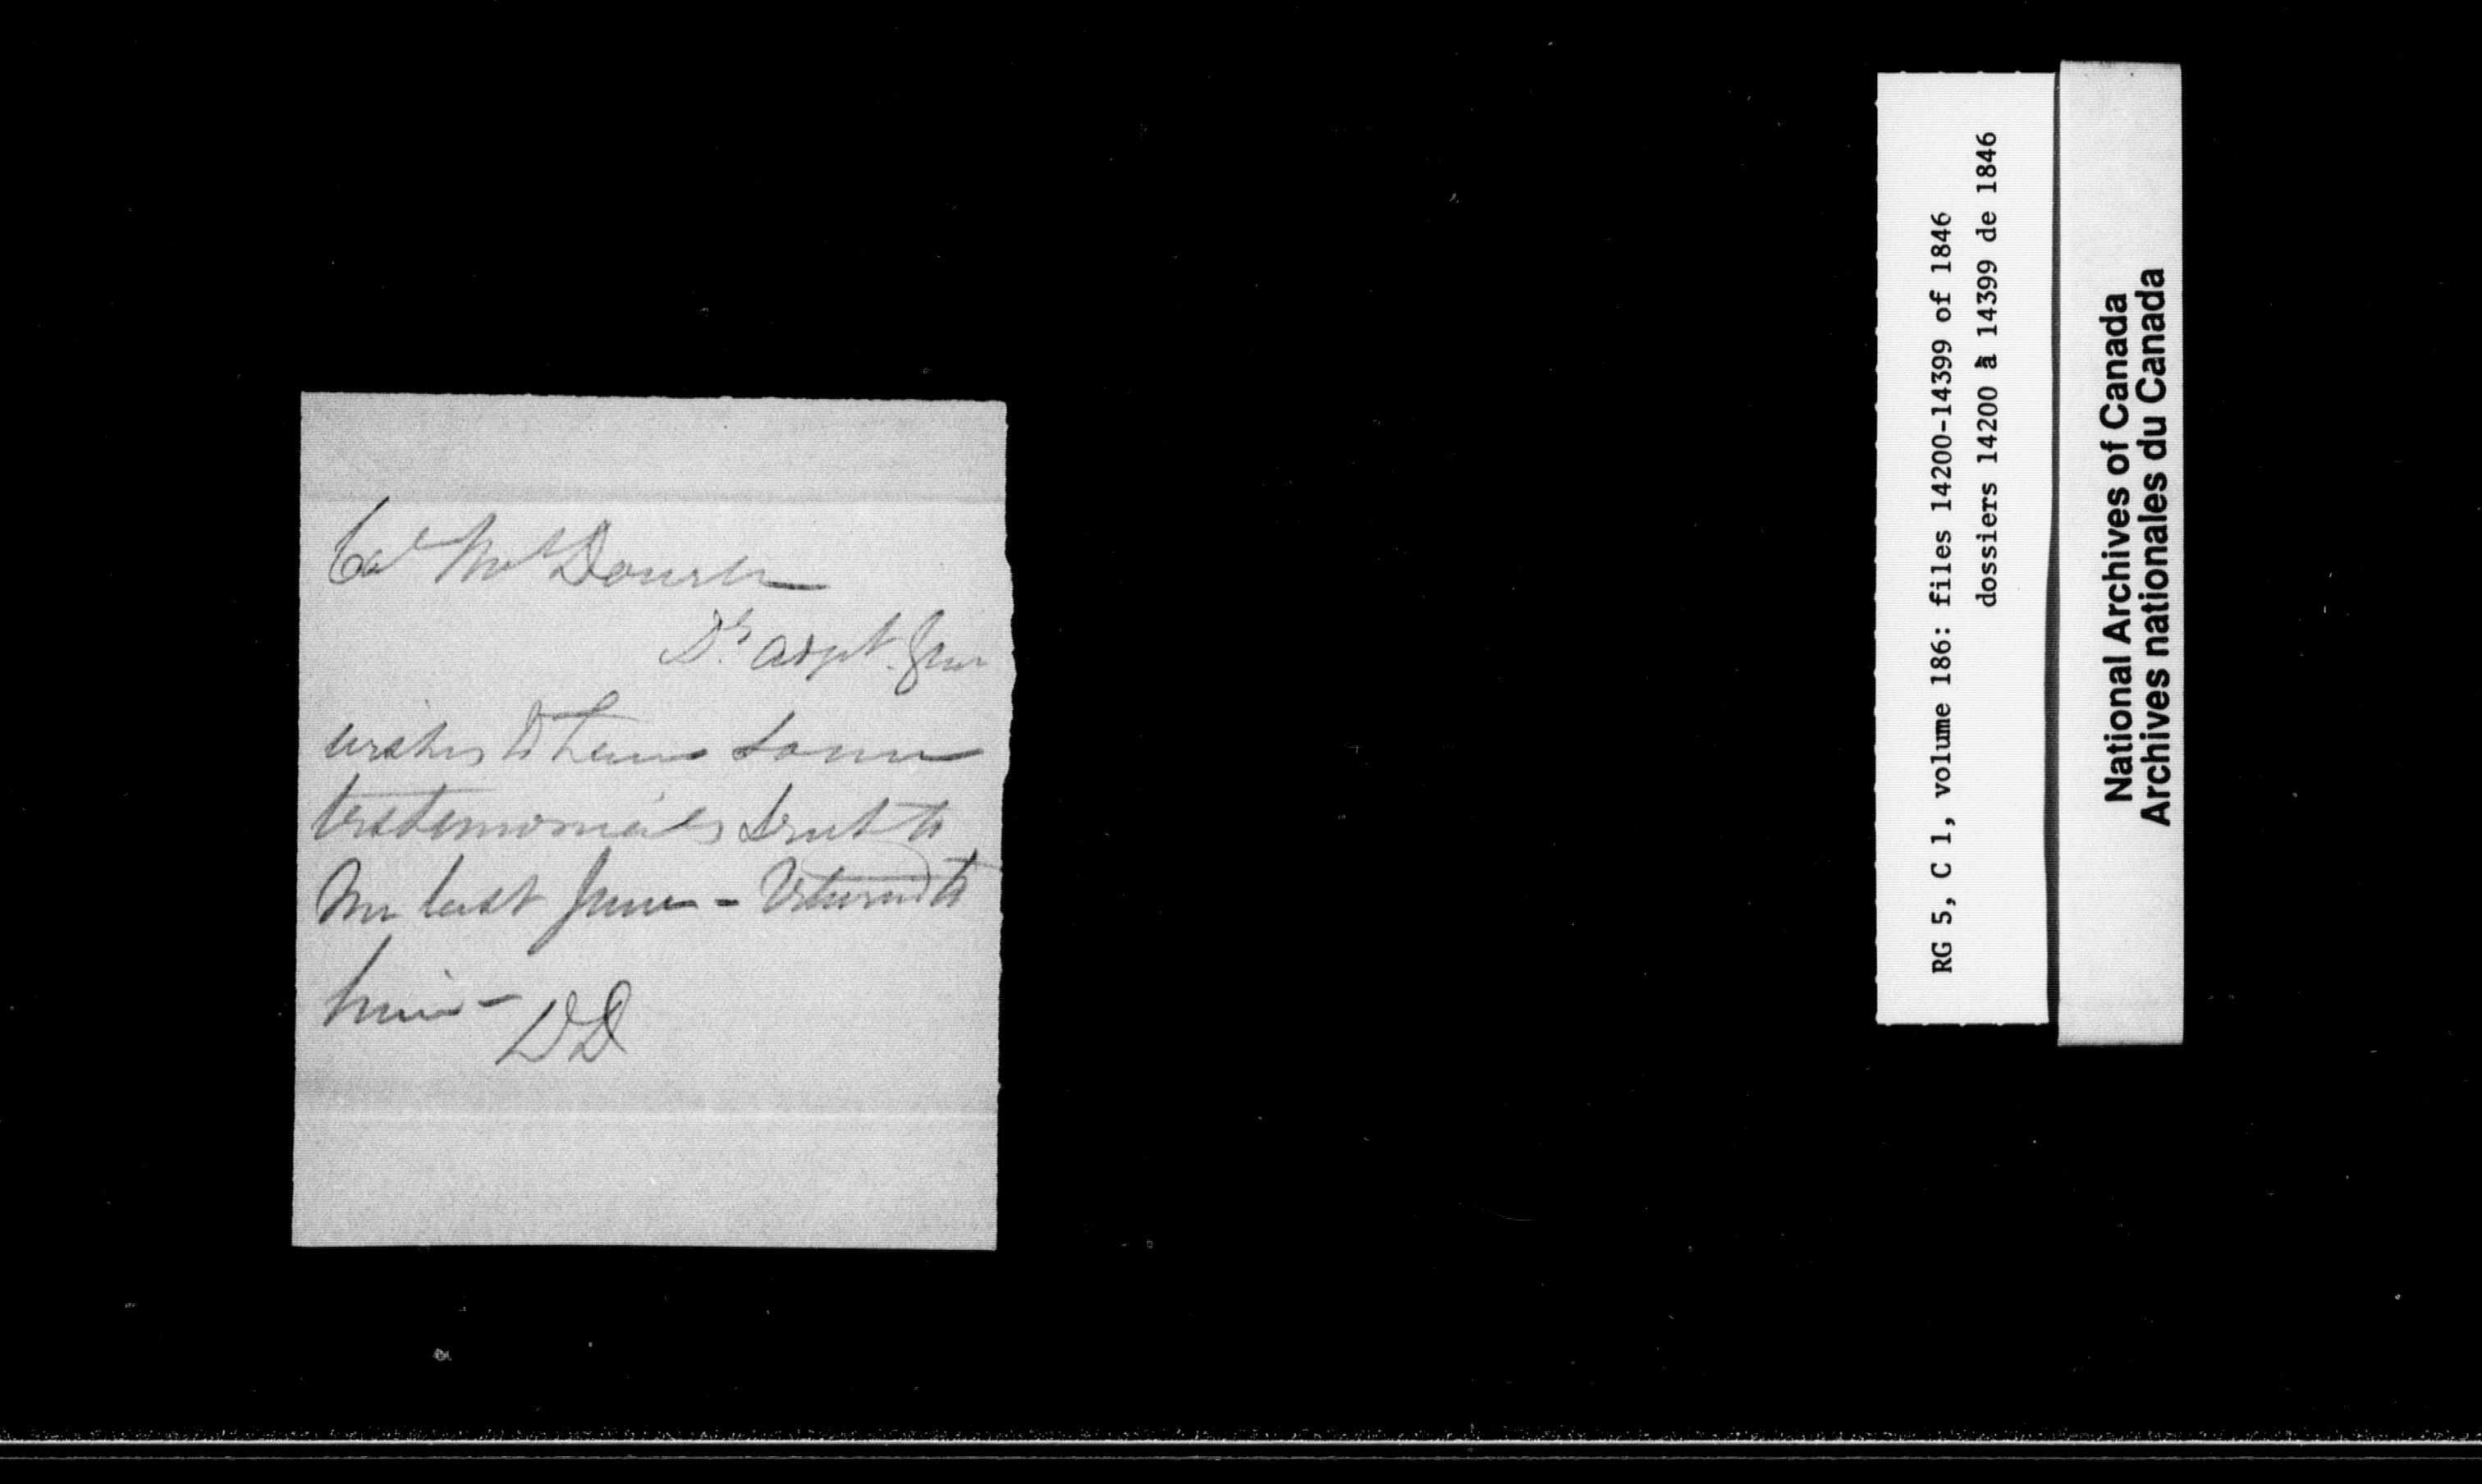 Col McDonell
Dy. Adjt. Gen
wishes to have some
testimonials sent to
me last June - returned to
him -
DD
RG 5, C 1, volume 186: files 14200-14399 of 1846
dossiers 14200 à 14399 de 1846
National Archives of Canada
Archives nationales du Canada